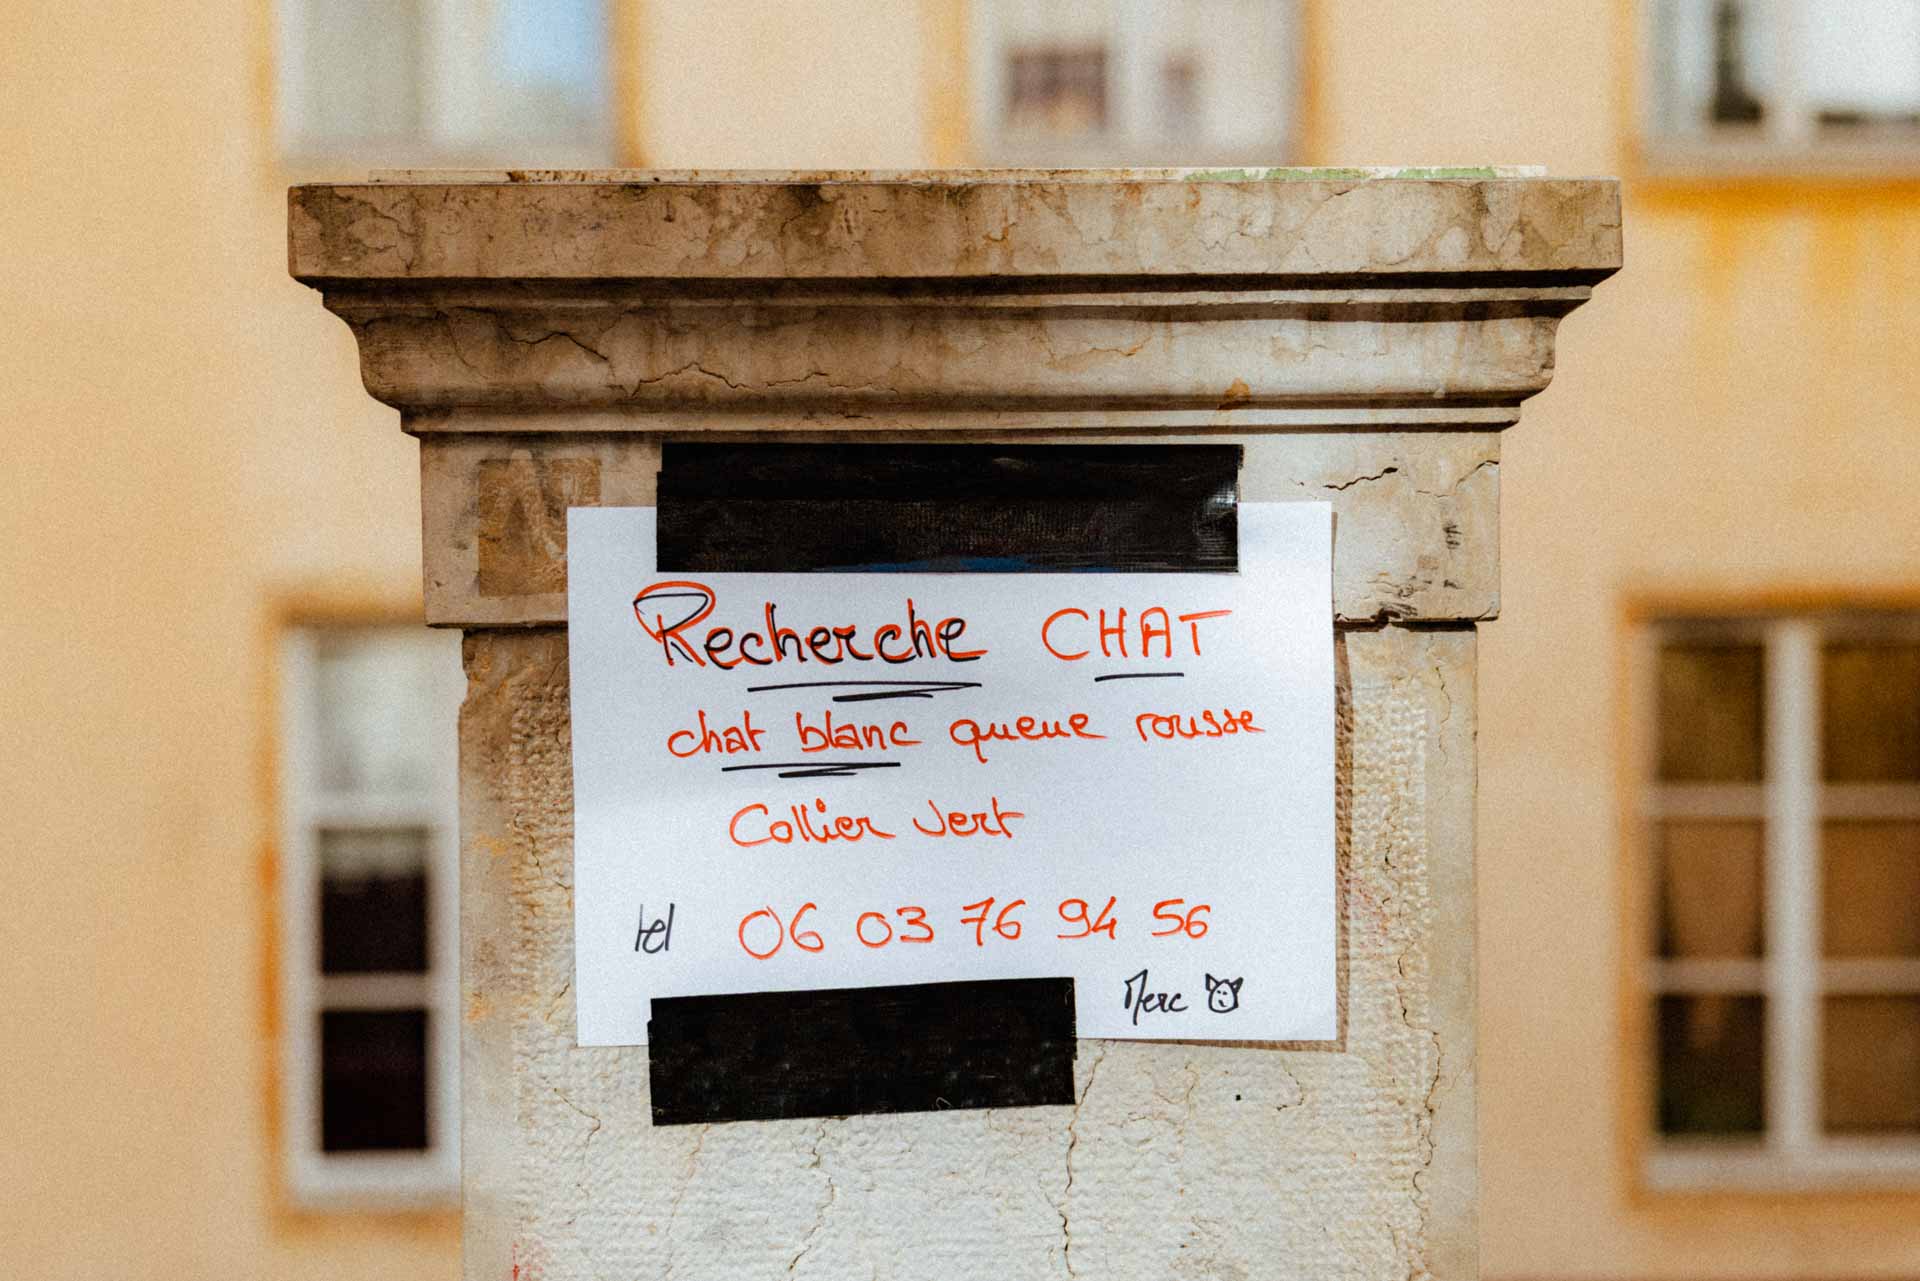 Recherche CHAT
chat blanc queue rousse
Collier vert
tel 06 03 76 94 56
Merc